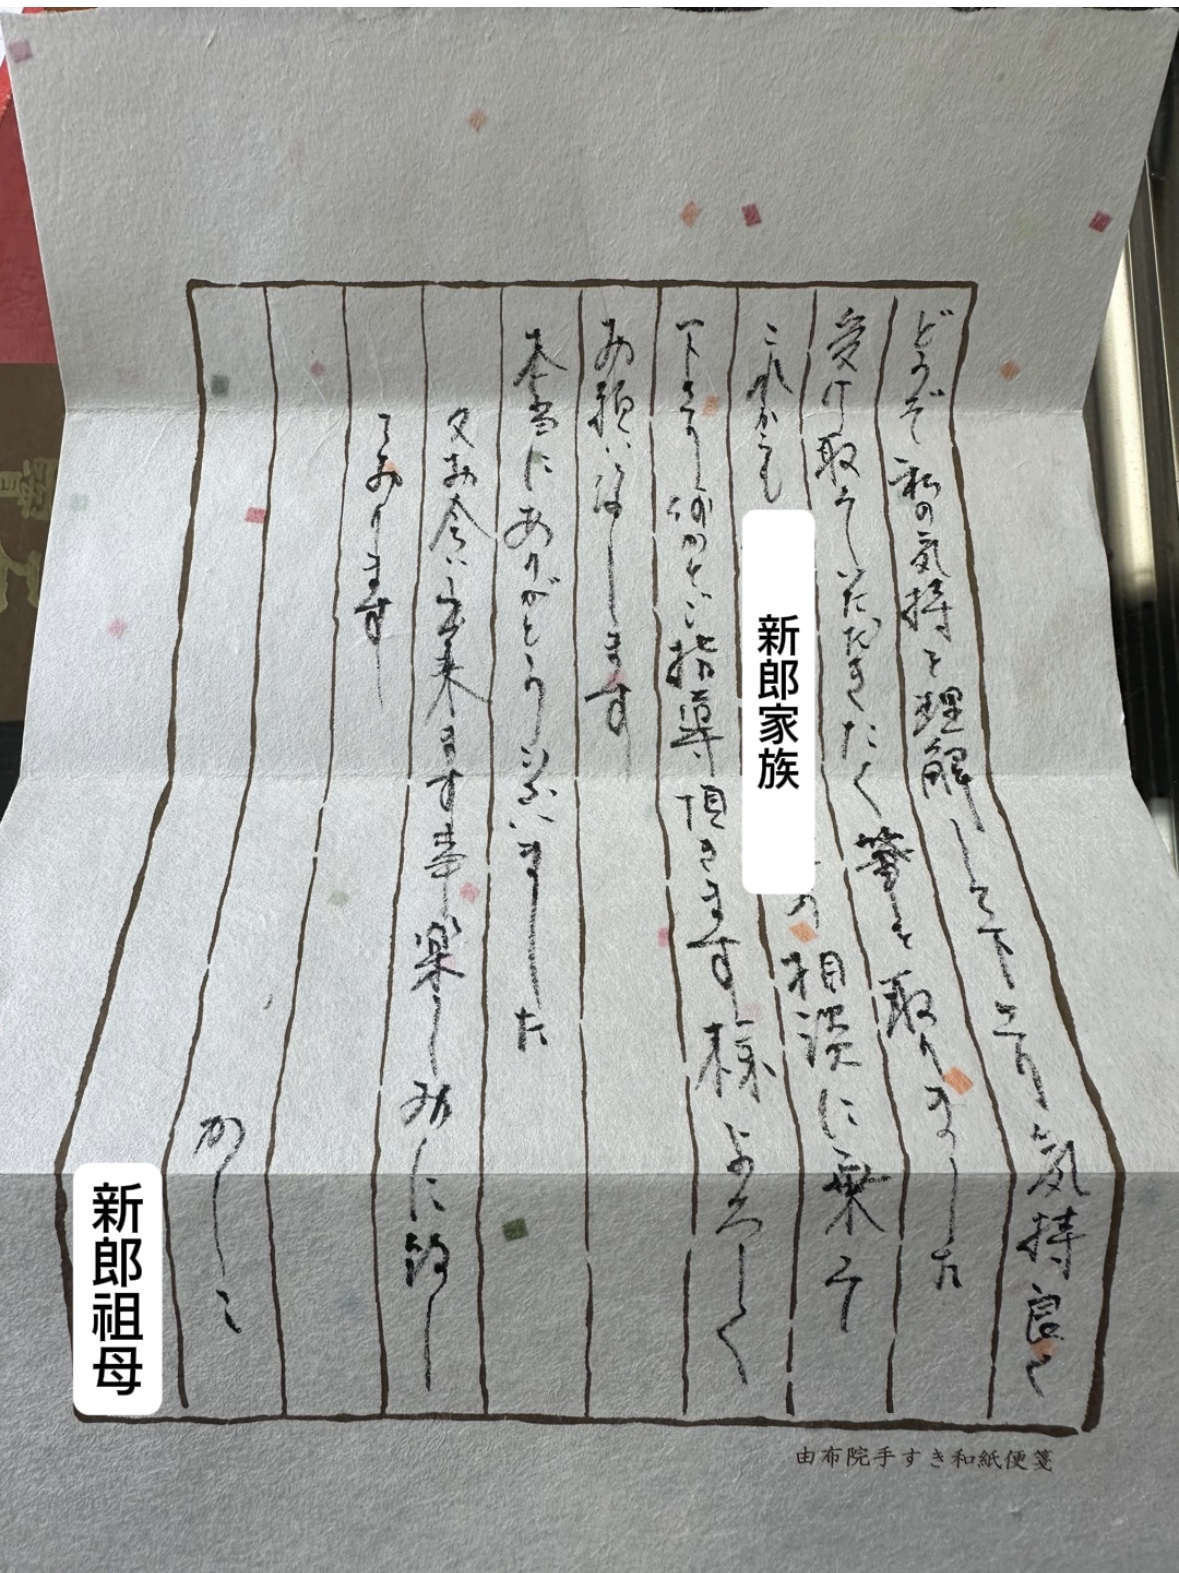 どうぞ私の気持を理解して下さり気持良く
受け取っていただきたく筆を取りました
これからも
新郎家族
の相談に乗って
下さり何かとご指導頂きます様よろしく
お願い致します
本当にありがとうございました
又お会い出来ます事楽しみに致し
ております
かしこ
新郎祖母
由布院手すき和紙便箋